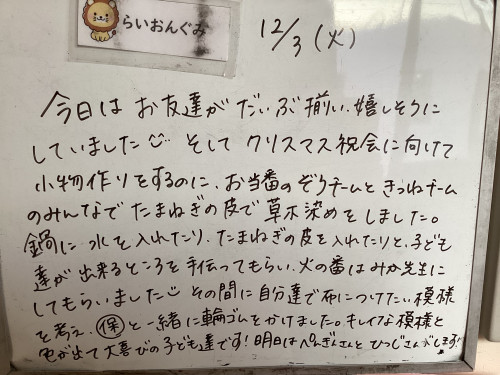 らいおんぐみ
12/3(火)
今日は お友達が だいぶ揃い、嬉しそうに
していました そして クリスマス祝会に向けて
小物作りをするのに、お当番のぞうチームと きつねチーム
のみんなで たまねぎの皮で 草木染めをしました。
鍋に 水を入れたり、たまねぎの皮を入れたりと、子ども
達が 出来るところを手伝ってもらい、火の番は みか先生に
してもらいました その間に自分達で布につけたい模様
を考え、保と一緒に輪ゴムをかけました。キレイな模様と
色が出て大喜びの子ども達です!明日はぺんぎんさんと ひつじさんがします!